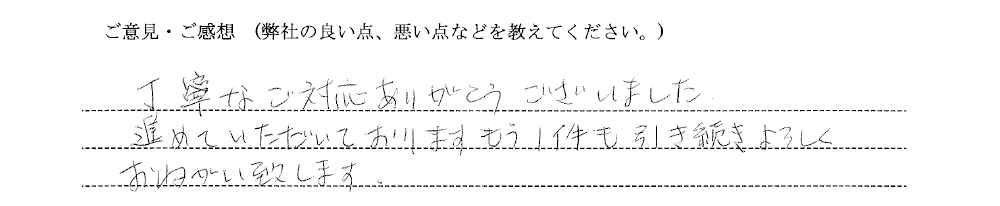 ご意見・ご感想 (弊社の良い点、悪い点などを教えてください。)
丁寧なご対応ありがとうございました.
進めていただいておりますもう1件も引き続きよろしく
おねがい致します.